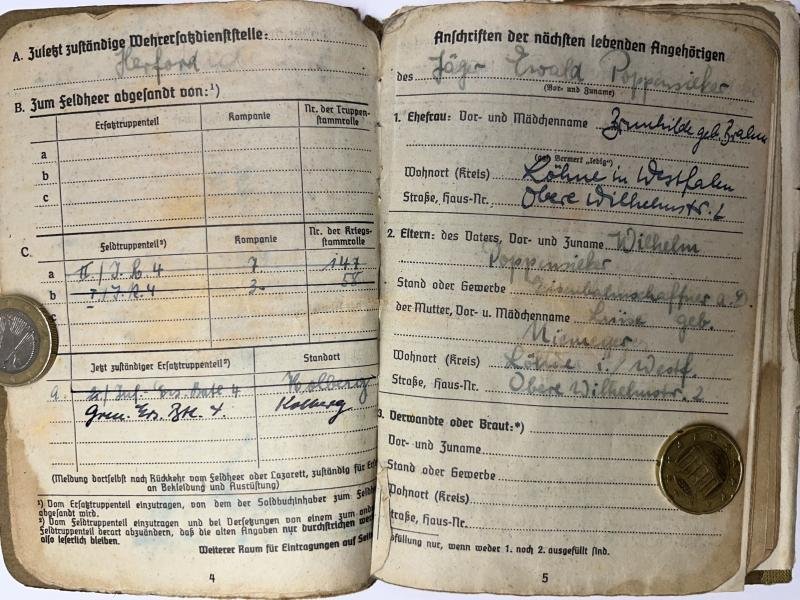 A. Zuletzt zuständige Wehrersatzdienststelle:
Herford
B. Zum Feldheer abgesandt von:¹)
Ersatztruppenteil Kompanie Nr. der Truppen-
stammrolle
a
b
c
C. Feldtruppenteil²) Kompanie Nr. der Kriegs-
stammrolle
a II./J.R.4 7 147
b I./J.R.4 3. 58
c
Jetzt zuständiger Ersatztruppenteil²) Standort
a. Inf. Ers. Batl. 4 Kolberg
Gren. Ers. Btl. 4. Kolberg
(Meldung dortselbst nach Rückkehr vom Feldheer oder Lazarett, zuständig für Ers
an Bekleidung und Ausrüstung)
¹) Vom Ersatztruppenteil einzutragen, von dem der Soldbuchinhaber zum Feldh
abgesandt wird.
²) Vom Feldtruppenteil einzutragen und bei Versetzungen von einem zum and
Feldtruppenteil derart abzuändern, daß die alten Angaben nur durchstrichen wer
also leserlich bleiben.
Weiterer Raum für Eintragungen auf Seit
4
Anschriften der nächsten lebenden Angehörigen
des Jäger Ewald Poppensieker
(Vor- und Zuname)
1. Ehefrau: Vor- und Mädchenname geb.
(ggf. Vermerk „ledig“)
Wohnort (Kreis) Löhne in Westfalen
Straße, Haus-Nr. Obere Wilhelmstr. 2
2. Eltern: des Vaters, Vor- und Zuname Wilhelm
Poppensieker
Stand oder Gewerbe Eisenbahnschaffner a. D.
der Mutter, Vor- u. Mädchenname Luise geb.
Niemeyer
Wohnort (Kreis) Löhne i./Westf.
Straße, Haus-Nr. Obere Wilhelmstr. 2
3. Verwandte oder Braut:*)
Vor- und Zuname
Stand oder Gewerbe
Wohnort (Kreis)
Straße, Haus-Nr.
sfüllung nur, wenn weder 1. noch 2. ausgefüllt sind.
5